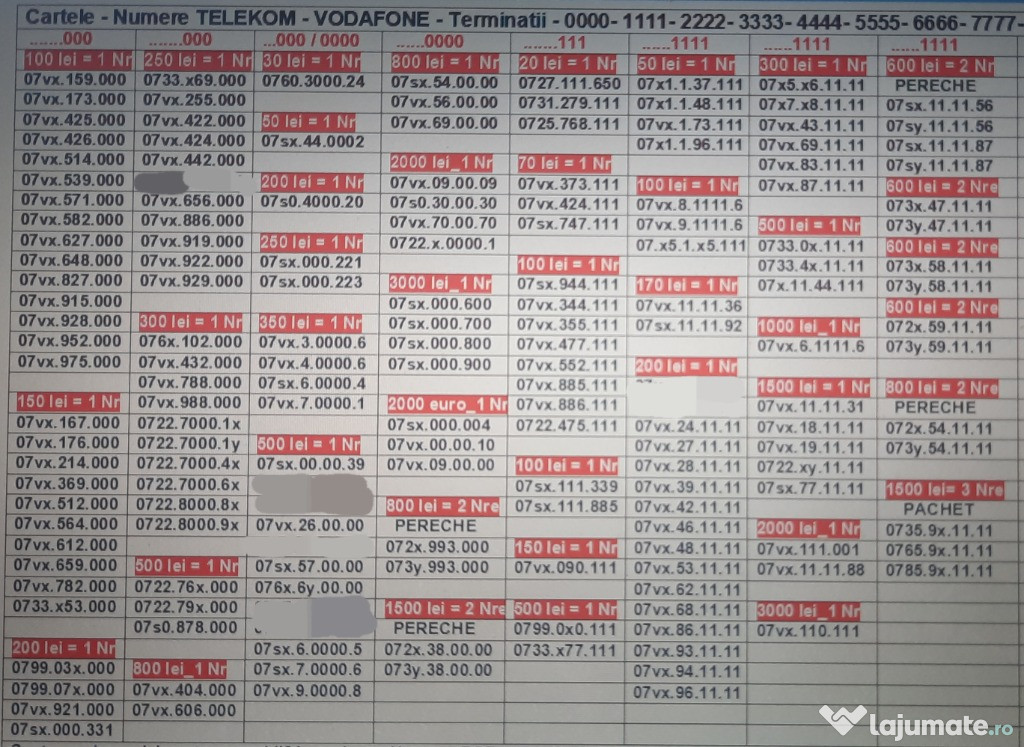 Cartele - Numere TELEKOM - VODAFONE - Terminatii - 0000- 1111- 2222- 3333- 4444- 5555- 6666- 7777-
.......000
100 lei = 1 Nr
07vx.159.000
07vx.173.000
07vx.425.000
07vx.426.000
07vx.514.000
07vx.539.000
07vx.571.000
07vx.582.000
07vx.627.000
07vx.648.000
07vx.827.000
07vx.915.000
07vx.928.000
07vx.952.000
07vx.975.000
150 lei = 1 Nr
07vx.167.000
07vx.176.000
07vx.214.000
07vx.369.000
07vx.512.000
07vx.564.000
07vx.612.000
07vx.659.000
07vx.782.000
0733.x53.000
200 lei = 1 Nr
0799.03x.000
0799.07x.000
07vx.921.000
07sx.000.331
.......000
250 lei = 1 Nr
0733.x69.000
07vx.255.000
07vx.422.000
07vx.424.000
07vx.442.000
07vx.656.000
07vx.886.000
07vx.919.000
07vx.922.000
07vx.929.000
300 lei = 1 Nr
076x.102.000
07vx.432.000
07vx.788.000
07vx.988.000
0722.7000.1x
0722.7000.1y
0722.7000.4x
0722.7000.6x
0722.8000.8x
0722.8000.9x
500 lei = 1 Nr
0722.76x.000
0722.79x.000
07s0.878.000
800 lei_1 Nr
07vx.404.000
07vx.606.000
...000 / 0000
30 lei = 1 Nr
0760.3000.24
50 lei = 1 Nr
07sx.44.0002
200 lei = 1 Nr
07s0.4000.20
250 lei = 1 Nr
07sx.000.221
07sx.000.223
350 lei = 1 Nr
07vx.3.0000.6
07vx.4.0000.6
07sx.6.0000.4
07vx.7.0000.1
500 lei = 1 Nr
07sx.00.00.39
07vx.26.00.00
07sx.57.00.00
076x.6y.00.00
07sx.6.0000.5
07sx.7.0000.6
07vx.9.0000.8
......0000
800 lei = 1 Nr
07sx.54.00.00
07vx.56.00.00
07vx.69.00.00
2000 lei_1 Nr
07vx.09.00.09
07s0.30.00.30
07vx.70.00.70
0722.x.0000.1
3000 lei_1 Nr
07sx.000.600
07sx.000.700
07sx.000.800
07sx.000.900
2000 euro_1 Nr
07sx.000.004
07vx.00.00.10
07vx.09.00.00
800 lei = 2 Nre
PERECHE
072x.993.000
073y.993.000
1500 lei = 2 Nre
PERECHE
072x.38.00.00
073y.38.00.00
.......111
20 lei = 1 Nr
0727.111.650
0731.279.111
0725.768.111
70 lei = 1 Nr
07vx.373.111
07vx.424.111
07sx.747.111
100 lei = 1 Nr
07sx.944.111
07vx.344.111
07vx.355.111
07vx.477.111
07vx.552.111
07vx.885.111
07vx.886.111
0722.475.111
100 lei = 1 Nr
07sx.111.339
07sx.111.885
150 lei = 1 Nr
07vx.090.111
500 lei = 1 Nr
0799.0x0.111
0733.x77.111
......1111
50 lei = 1 Nr
07x1.1.37.111
07x1.1.48.111
07vx.1.73.111
07x1.1.96.111
100 lei = 1 Nr
07vx.8.1111.6
07vx.9.1111.6
07.x5.1.x5.111
170 lei = 1 Nr
07vx.11.11.36
07sx.11.11.92
200 lei = 1 Nr
07vx.24.11.11
07vx.27.11.11
07vx.28.11.11
07vx.39.11.11
07vx.42.11.11
07vx.46.11.11
07vx.48.11.11
07vx.53.11.11
07vx.62.11.11
07vx.68.11.11
07vx.86.11.11
07vx.93.11.11
07vx.94.11.11
07vx.96.11.11
......1111
300 lei = 1 Nr
07x5.x6.11.11
07x7.x8.11.11
07vx.43.11.11
07vx.69.11.11
07vx.83.11.11
07vx.87.11.11
500 lei = 1 Nr
0733.0x.11.11
0733.4x.11.11
07x.11.44.111
1000 lei_1 Nr
07vx.6.1111.6
1500 lei = 1 Nr
07vx.11.11.31
07vx.18.11.11
07vx.19.11.11
0722.xy.11.11
07sx.77.11.11
2000 lei_1 Nr
07vx.111.001
07vx.11.11.88
3000 lei_1 Nr
07vx.110.111
......1111
600 lei = 2 Nr
PERECHE
07sx.11.11.56
07sy.11.11.56
07sx.11.11.87
07sy.11.11.87
600 lei = 2 Nre
073x.47.11.11
073y.47.11.11
600 lei = 2 Nre
073x.58.11.11
073y.58.11.11
600 lei = 2 Nre
072x.59.11.11
073y.59.11.11
800 lei = 2 Nre
PERECHE
072x.54.11.11
073y.54.11.11
1500 lei= 3 Nre
PACHET
0735.9x.11.11
0765.9x.11.11
0785.9x.11.11
lajumate.ro